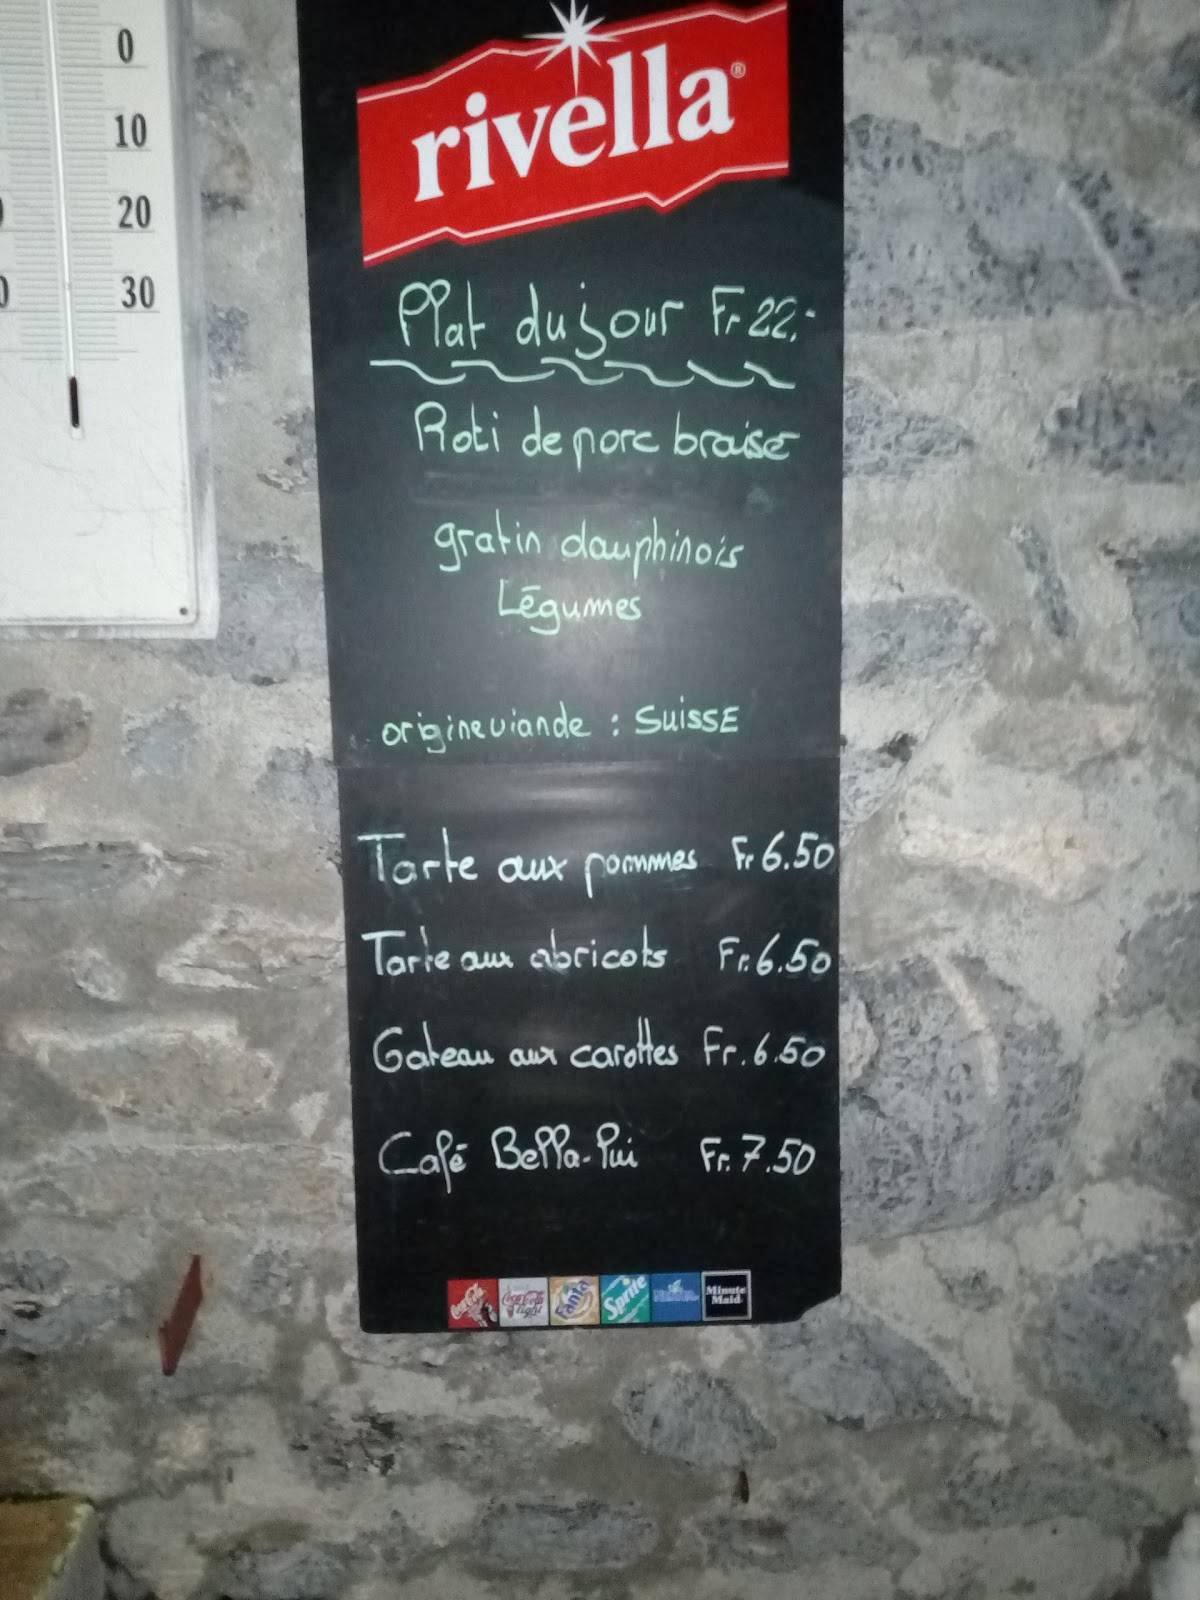 0
10
20
30
rivella®
Plat du jour Fr 22.-
Roti de porc braisé
gratin dauphinois
Légumes
origine viande : SuissE
Tarte aux pommes Fr 6.50
Tarte aux abricots Fr. 6.50
Gateau aux carottes Fr. 6.50
Café Bella-lui Fr. 7.50
Coca-Cola
Coca-Cola light
Fanta
Sprite
Minute Maid